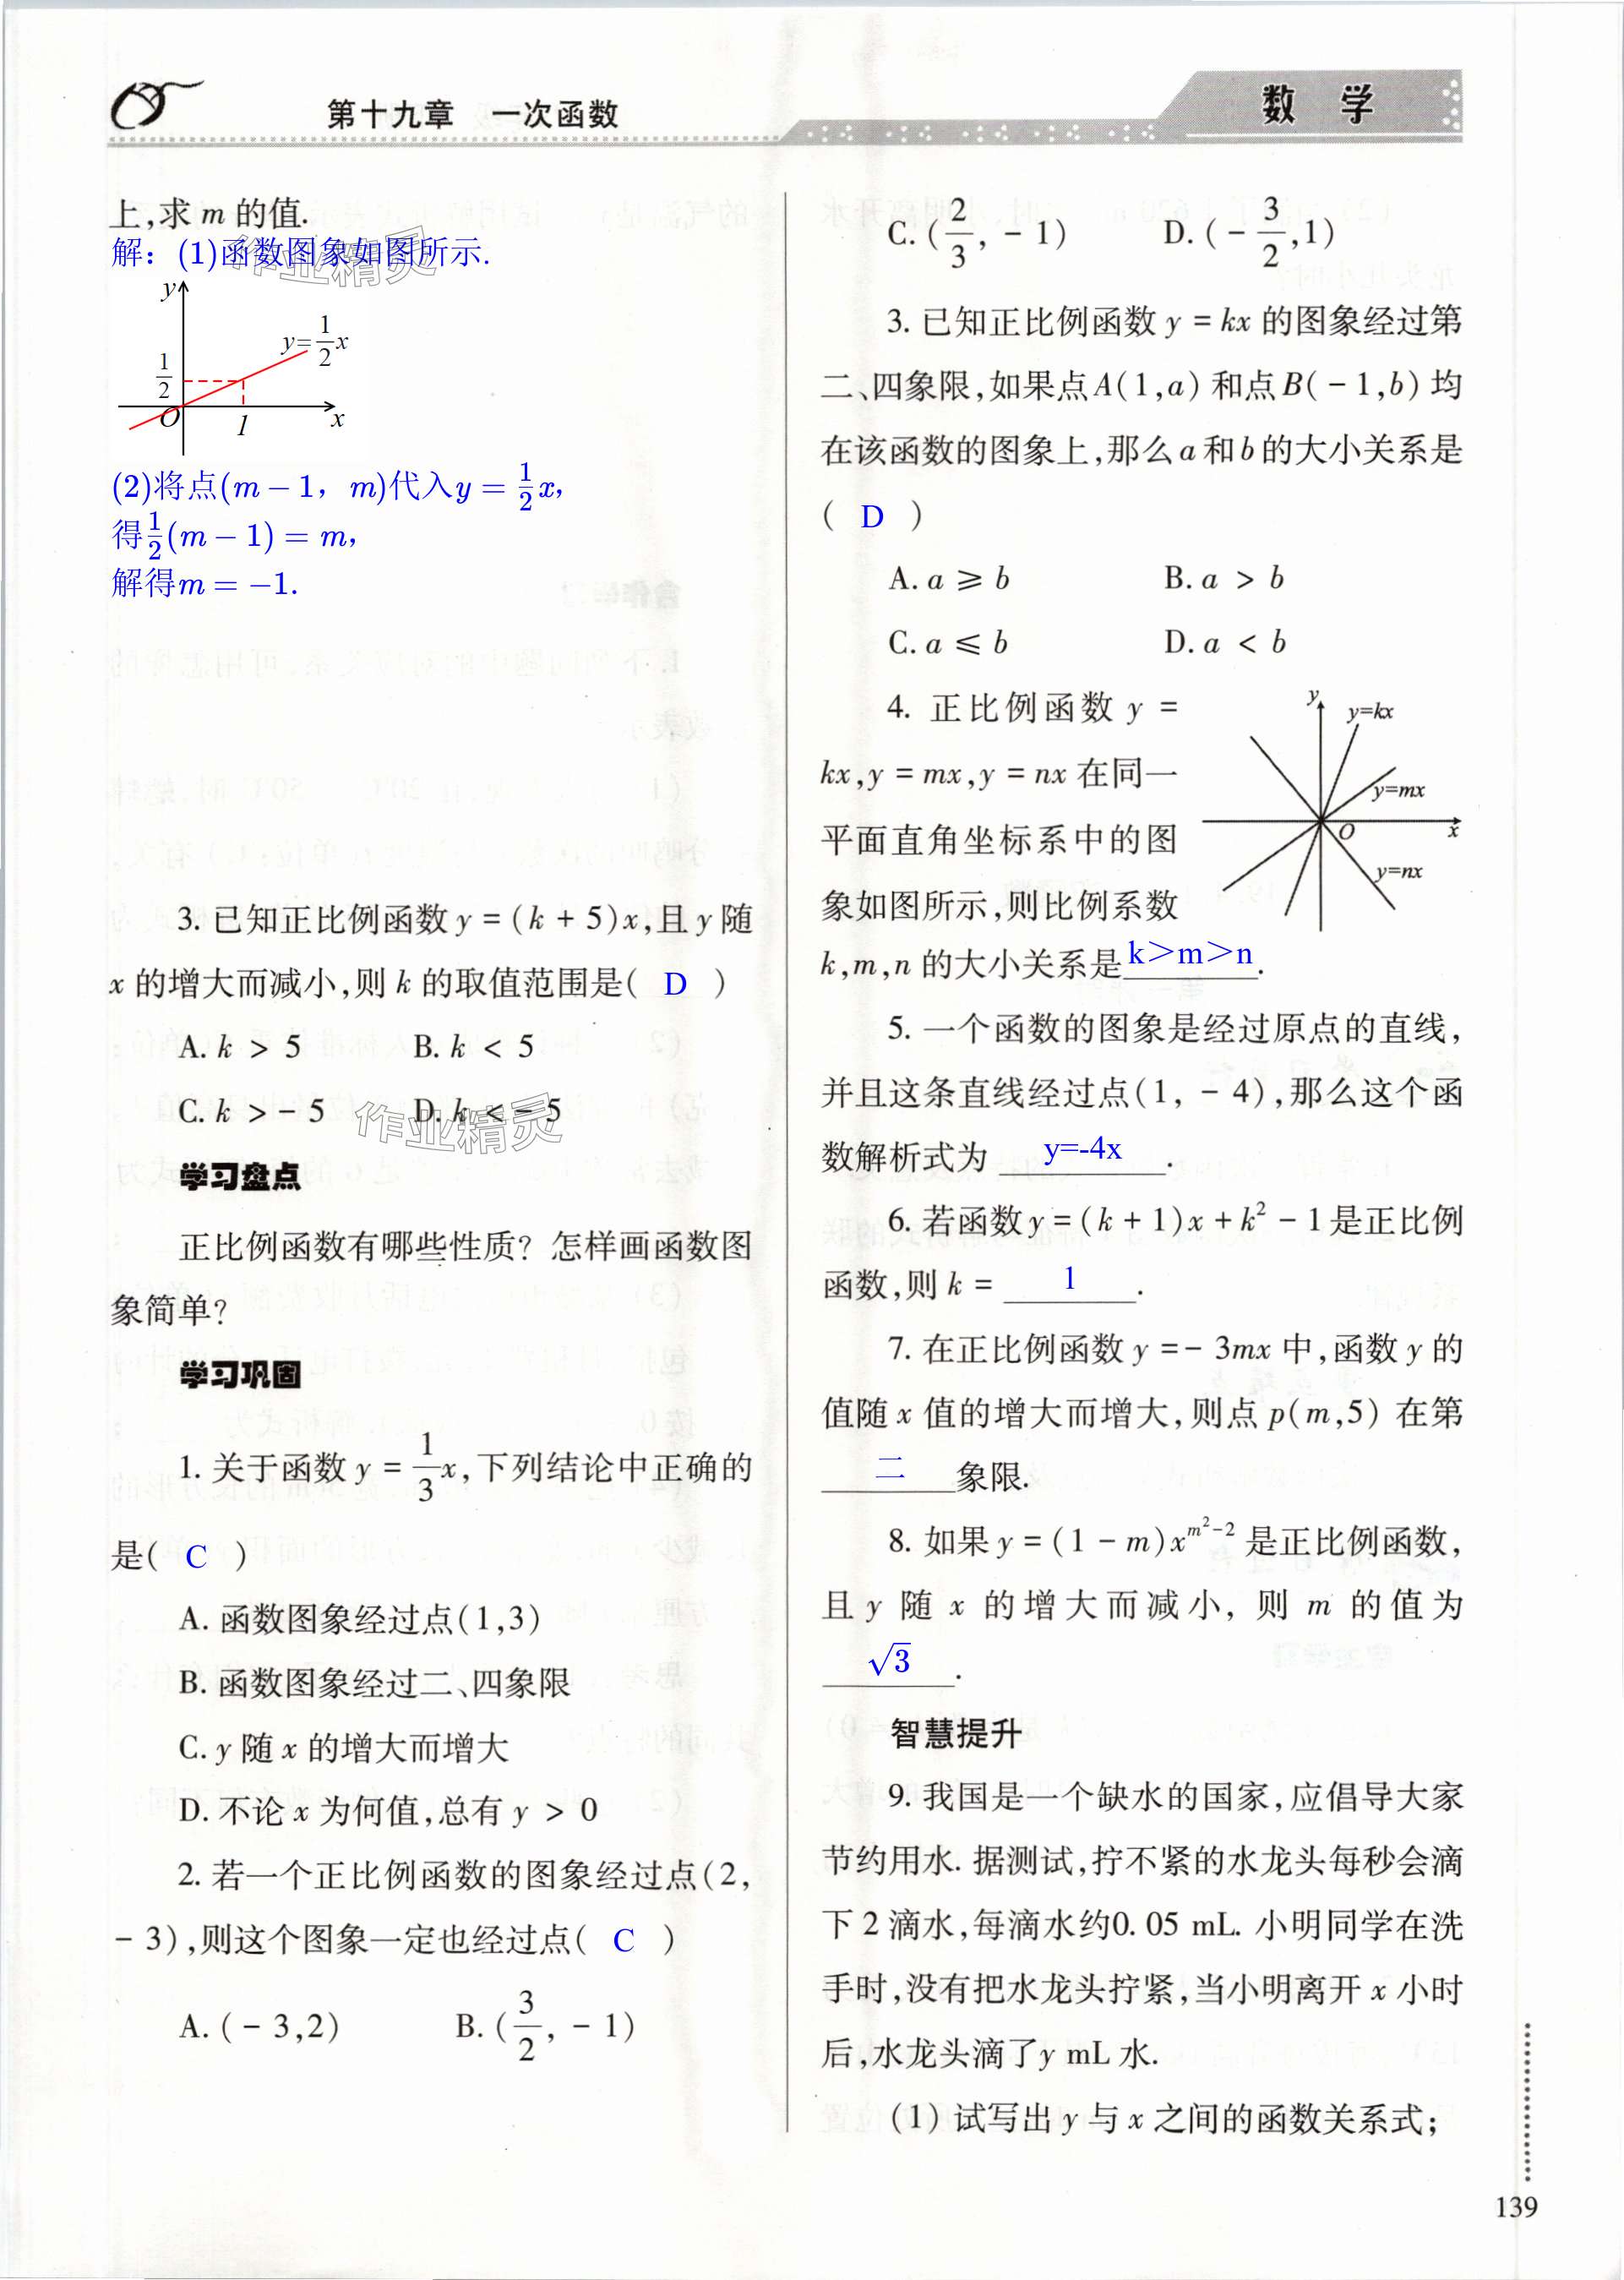 第十九章 一次函数
数 学
上,求 m 的值.
解：(1)函数图象如图所示.
作业精灵
y
y=1/2x
1/2
O
1
x
(2)将点(m-1，m)代入y=1/2x，
得1/2(m-1)=m，
解得m=-1.
3. 已知正比例函数 y = (k + 5)x,且 y 随
x 的增大而减小,则 k 的取值范围是( D )
A. k > 5 B. k < 5
C. k > - 5 D. k < - 5
作业精灵
学习盘点
正比例函数有哪些性质? 怎样画函数图
象简单?
学习巩固
1. 关于函数 y = 1/3x,下列结论中正确的
是( C )
A. 函数图象经过点(1,3)
B. 函数图象经过二、四象限
C. y 随 x 的增大而增大
D. 不论 x 为何值,总有 y > 0
2. 若一个正比例函数的图象经过点(2,
- 3),则这个图象一定也经过点( C )
A. ( - 3,2) B. (3/2, - 1)
C. (2/3, - 1) D. ( - 3/2,1)
3. 已知正比例函数 y = kx 的图象经过第
二、四象限,如果点 A(1,a) 和点 B( - 1,b) 均
在该函数的图象上,那么 a 和 b 的大小关系是
( D )
A. a ⩾ b B. a > b
C. a ⩽ b D. a < b
4. 正比例函数 y =
kx,y = mx,y = nx 在同一
平面直角坐标系中的图
象如图所示,则比例系数
k,m,n 的大小关系是k＞m＞n.
y
y=kx
y=mx
O
x
y=nx
5. 一个函数的图象是经过原点的直线,
并且这条直线经过点(1, - 4),那么这个函
数解析式为 y=-4x.
6. 若函数 y = (k + 1)x + k² - 1 是正比例
函数,则 k = 1.
7. 在正比例函数 y = - 3mx 中,函数 y 的
值随 x 值的增大而增大,则点 p(m,5) 在第
二象限.
8. 如果 y = (1 - m)x^(m²-2) 是正比例函数,
且 y 随 x 的增大而减小, 则 m 的值为
√3.
智慧提升
9. 我国是一个缺水的国家,应倡导大家
节约用水. 据测试,拧不紧的水龙头每秒会滴
下 2 滴水,每滴水约0. 05 mL. 小明同学在洗
手时,没有把水龙头拧紧,当小明离开 x 小时
后,水龙头滴了y mL 水.
(1) 试写出 y 与 x 之间的函数关系式;
139